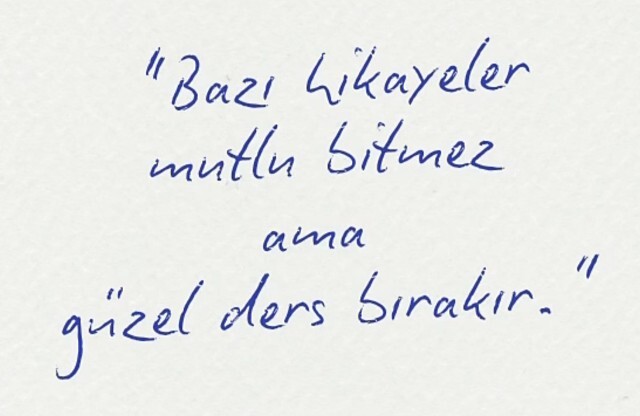 "Bazı hikayeler
mutlu bitmez
ama
güzel ders bırakır."